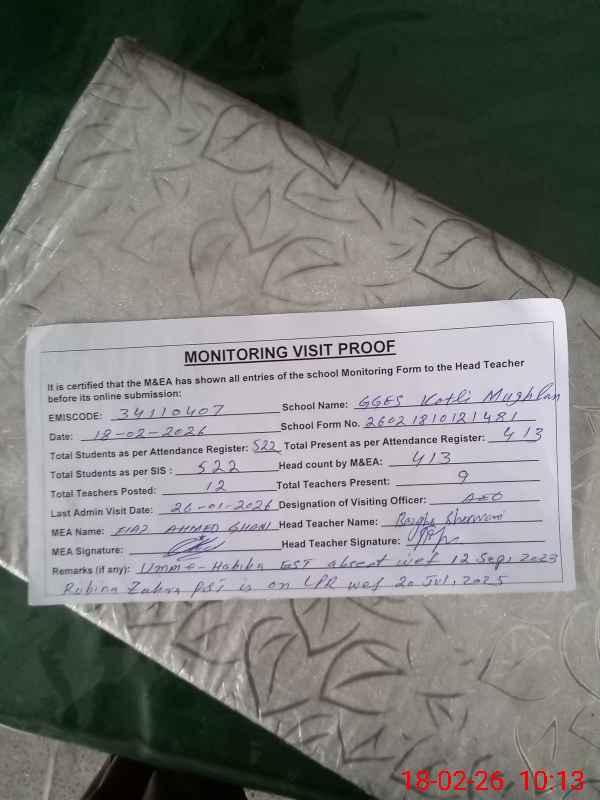 MONITORING VISIT PROOF
It is certified that the M&EA has shown all entries of the school Monitoring Form to the Head Teacher
before its online submission:
EMISCODE: 34110407 School Name: GGES Kotli Mughlan
Date: 18-02-2026 School Form No. 26021810121481
Total Students as per Attendance Register: 522 Total Present as per Attendance Register: 413
Total Students as per SIS : 522 Head count by M&EA: 413
Total Teachers Posted: 12 Total Teachers Present: 9
Last Admin Visit Date: 26-01-2026 Designation of Visiting Officer: AEO
MEA Name: AHMED GHANI Head Teacher Name:
MEA Signature: Head Teacher Signature:
Remarks (if any): Umme-Habiba EST absent wef 12 Sep, 2023
Rubina Zahra PST is on LPR wef 20 Jul, 2025
18-02-26 10:13